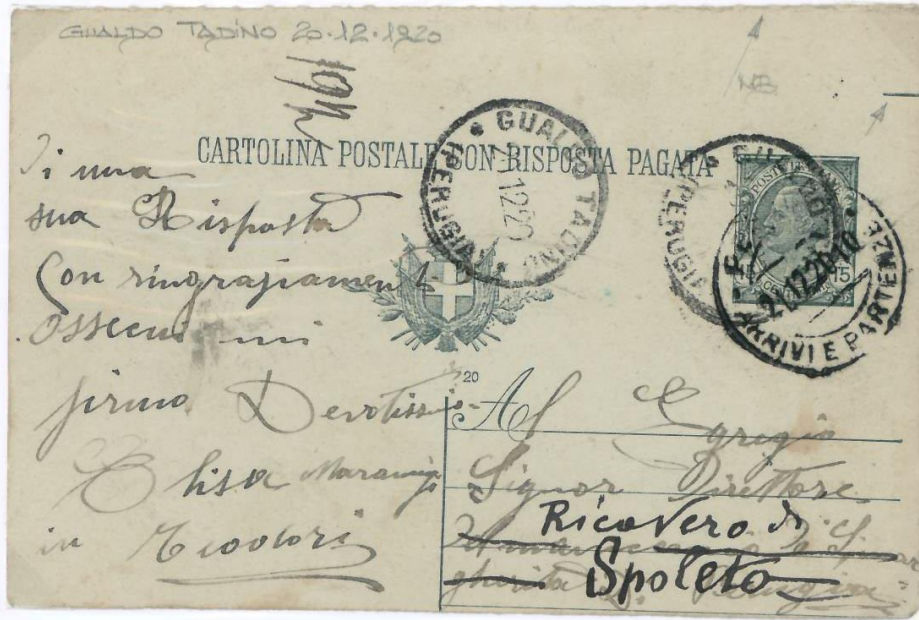 GUALDO TADINO 20.12.1920
NB
CARTOLINA POSTALE CON RISPOSTA PAGATA
GUALDO TADINO
(PERUGIA)
12 20
(PERUGIA)
POSTE
15
21.12.20.10
ARRIVI E PARTENZE
una
sua Risposta
Con ringraziamenti
Ossequi mi
firmo Devotissi
Elisa
in Teodori
20
Al Egregio
Signor Direttore
Ricovero di
Spoleto